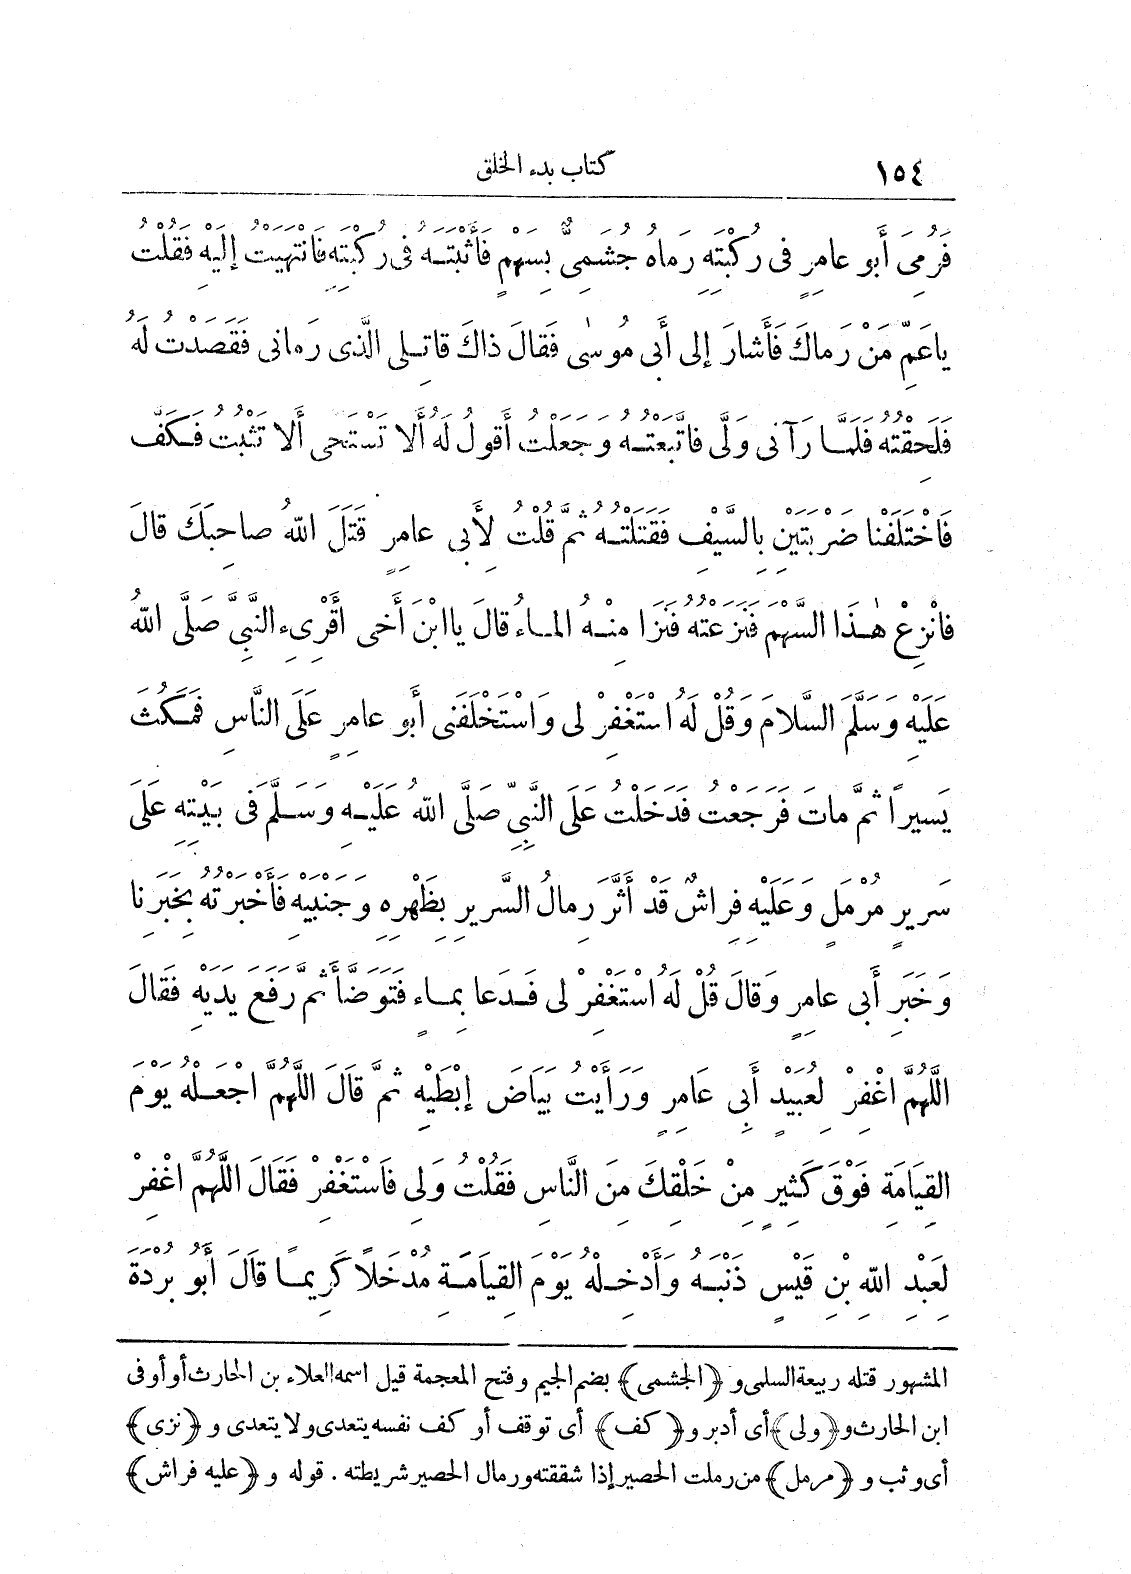 ١٥٤
كتاب بدء الخلق
فَرُمِىَ أَبُو عامِرٍ فى رُكْبَتِهِ رَماهُ جُشَمِىٌّ بِسَهْمٍ فَأَثْبَتَهُ فى رُكْبَتِهِ فَانْتَهَيْتُ إلَيْهِ فَقُلْتُ
ياعَمِّ مَنْ رَماكَ فَأَشارَ إلى أَبى مُوسٰى فَقالَ ذاكَ قاتِلى الَّذى رَمانى فَقَصَدْتُ لَهُ
فَلَحِقْتُهُ فَلَمَّا رَآنى وَلَّى فاتَّبَعْتُهُ وَجَعَلْتُ أَقُولُ لَهُ أَلا تَسْتَحِى أَلا تَثْبُتُ فَكَفَّ
فَاخْتَلَفْنا ضَرْبَتَيْنِ بِالسَّيْفِ فَقَتَلْتُهُ ثُمَّ قُلْتُ لِأَبِى عامِرٍ قَتَلَ اللّهُ صاحِبَكَ قالَ
فانْزِعْ هٰذَا السَّهْمَ فَنَزَعْتُهُ فَنَزَا مِنْهُ الماءُ قالَ ياابْنَ أَخِى أَقْرِىءِ النَّبِىَّ صَلَّى اللّهُ
عَلَيْهِ وَسَلَّمَ السَّلامَ وَقُلْ لَهُ اسْتَغْفِرْ لى وَاسْتَخْلَفَنى أَبُو عامِرٍ عَلَى النَّاسِ فَمَكُثَ
يَسيراً ثُمَّ ماتَ فَرَجَعْتُ فَدَخَلْتُ عَلَى النَّبِىِّ صَلَّى اللّهُ عَلَيْهِ وَسَلَّمَ فى بَيْتِهِ عَلَى
سَريرٍ مُرْمَلٍ وَعَلَيْهِ فِراشٌ قَدْ أَثَّرَ رِمالُ السَّريرِ بِظَهْرِهِ وَجَنْبَيْهِ فَأَخْبَرْتُهُ بِخَبَرِنا
وَخَبَرِ أَبى عامِرٍ وَقالَ قُلْ لَهُ اسْتَغْفِرْ لى فَدَعا بِماءٍ فَتَوَضَّأَ ثُمَّ رَفَعَ يَدَيْهِ فَقالَ
اللَّهُمَّ اغْفِرْ لِعُبَيْدٍ أَبِى عَامِرٍ وَرَأَيْتُ بَيَاضَ إبْطَيْهِ ثُمَّ قَالَ اللَّهُمَّ اجْعَلْهُ يَوْمَ
القِيَامَةِ فَوْقَ كَثِيرٍ مِنْ خَلْقِكَ مِنَ النَّاسِ فَقُلْتُ وَلِى فَاسْتَغْفِرْ فَقَالَ اللَّهُمَّ اغْفِرْ
لِعَبْدِ اللّهِ بْنِ قَيْسٍ ذَنْبَهُ وَأَدْخِلْهُ يَوْمَ القِيَامَةِ مُدْخَلاً كَرِيماً قَالَ أَبُو بُرْدَةَ
المشهور قتله ربيعة السلمى و ﴿الجشمى﴾ بضم الجيم وفتح المعجمة قيل اسمه العلاء بن الحارث أو أوفى
ابن الحارث و﴿ولى﴾ أى أدبر و﴿كف﴾ أى توقف أو كف نفسه يتعدى ولا يتعدى و ﴿نزى﴾
أى وثب و ﴿مرمل﴾ من رملت الحصير إذا شققته ورمال الحصير شريطته . قوله و ﴿عليه فراش﴾